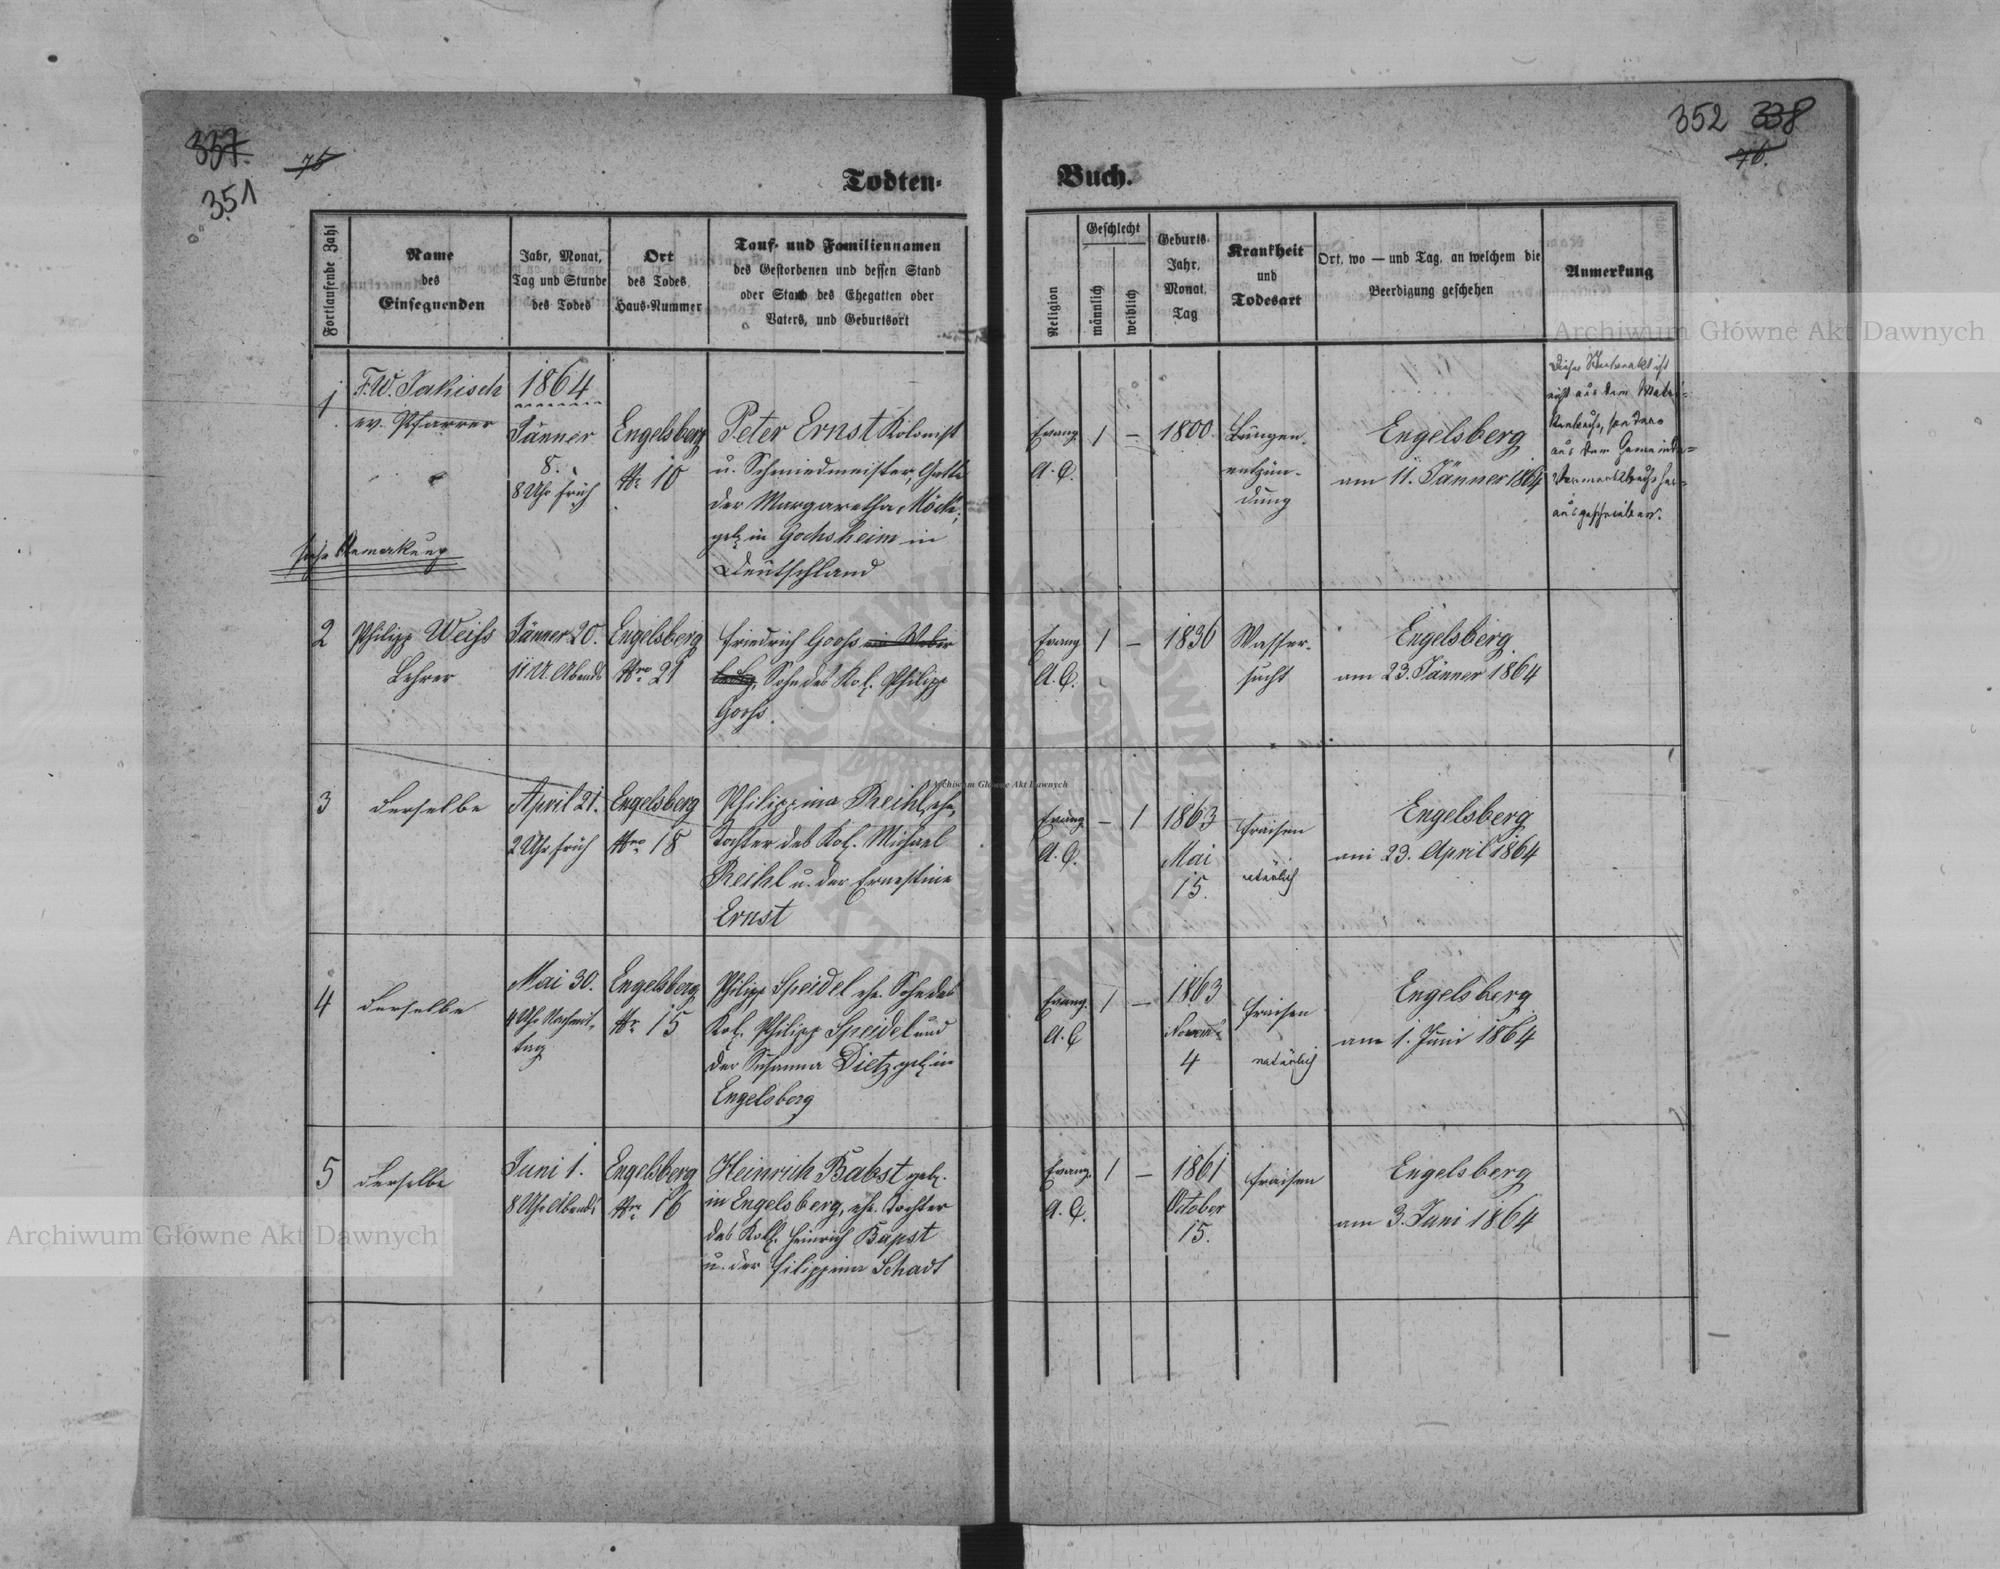 337.
351
76
352 338
76.
Todten-
Buch.
Fortlaufende Zahl
Name
des
Einsegnenden
Jahr, Monat,
Tag und Stunde
des Todes
Ort
des Todes,
Haus-Nummer
Tauf- und Familiennamen
des Gestorbenen und dessen Stand
oder Stand des Ehegatten oder
Vaters, und Geburtsort
Religion
Geschlecht
männlich
weiblich
Geburts-
Jahr,
Monat,
Tag
Krankheit
und
Todesart
Ort, wo — und Tag, an welchem die
Beerdigung geschehen
Anmerkung
1
F.W. Jakisch
ev. Pfarrer
siehe Bemerkung
1864
Jänner
8.
8 Uhr früh
Engelsberg
Nr. 10
Peter Ernst Kolonist
u. Schmiedmeister, Gatte
der Margaretha
geb. in Gochsheim in
Deutschland
Evang.
A. C.
1 —
1800.
Lungen-
entzün-
dung
Engelsberg
am 11. Jänner 1864
Dieser Sterbeakt ist
nicht aus dem
sondern
aus dem Gemeinde-
ausgeschrieben.
2
Philipp Weiss
Lehrer
Jänner 20.
11 U. Abends
Engelsberg
Nro. 21
Friedrich Gooss
Sohn des Kol. Philipp
Gooss.
Evang
A. C.
1 —
1836
Wasser-
sucht
Engelsberg.
am 23. Jänner 1864
3
derselbe
April 21.
2 Uhr früh
Engelsberg
Nro. 18
Philippina Reikl, ehe.
Tochter des Kol. Michael
Reikl u. der Ernestine
Ernst
Evang
A. C.
— 1
1863
Mai
15.
Fraisen
natürlich
Engelsberg
am 23. April 1864
4
derselbe
Mai 30.
4 Uhr Nachmit-
tag
Engelsberg
Nr. 15
Philipp Speidel ehe. Sohn des
Kol. Philipp Speidel und
der Susanna Dietz geb. in
Engelsberg
Evang.
A. C
1 —
1863
4
Fraisen
natürlich
Engelsberg
am 1. Juni 1864
5
derselbe
Juni 1.
8 Uhr Abends
Engelsberg
Nr. 16
Heinrich Babst geb.
in Engelsberg, ehe. Tochter
des Kol. Heinrich Bapst
u. der Filippina Schadt
Evang.
A. C.
1 —
1861
October
15.
Fraisen
Engelsberg
am 3. Juni 1864
Archiwum Główne Akt Dawnych
Archiwum Główne Akt Dawnych
Archiwum Główne Akt Dawnych
ARCHIWUM GŁÓWNE AKT DAWNYCH